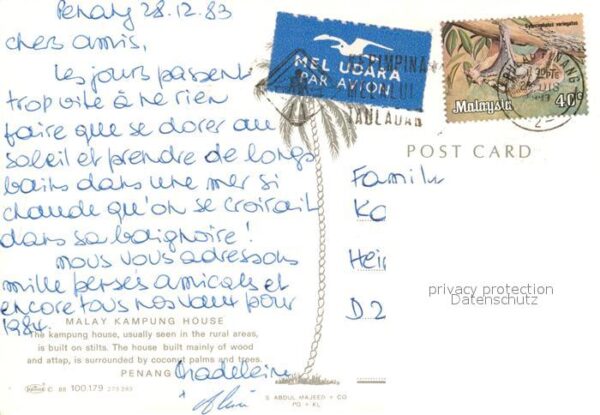 Penang 28.12.83
chers amis,
Les jours passent
trop vite à ne rien
faire que se dorer au
soleil et prendre de longs
bains dans une mer si
chaude qu'on se croirait
dans sa baignoire!
nous vous adressons
mille pensés amicales et
encore tous nos vœux pour
1984.
MALAY KAMPUNG HOUSE
The kampung house, usually seen in the rural areas,
is built on stilts. The house built mainly of wood
and attap, is surrounded by coconut palms and trees.
PENANG
Madeleine
+
MEL UDARA
PAR AVION
KEPIMPINA
MELALUI
TAULADAN
Cynocephalus variegatus
Malaysia 40c
PULAU PINANG
POST CARD
Famille
Ko
Hei
D 2
privacy protection
Datenschutz
C 88 100.179 275283
S. ABDUL MAJEED + CO
PG + KL